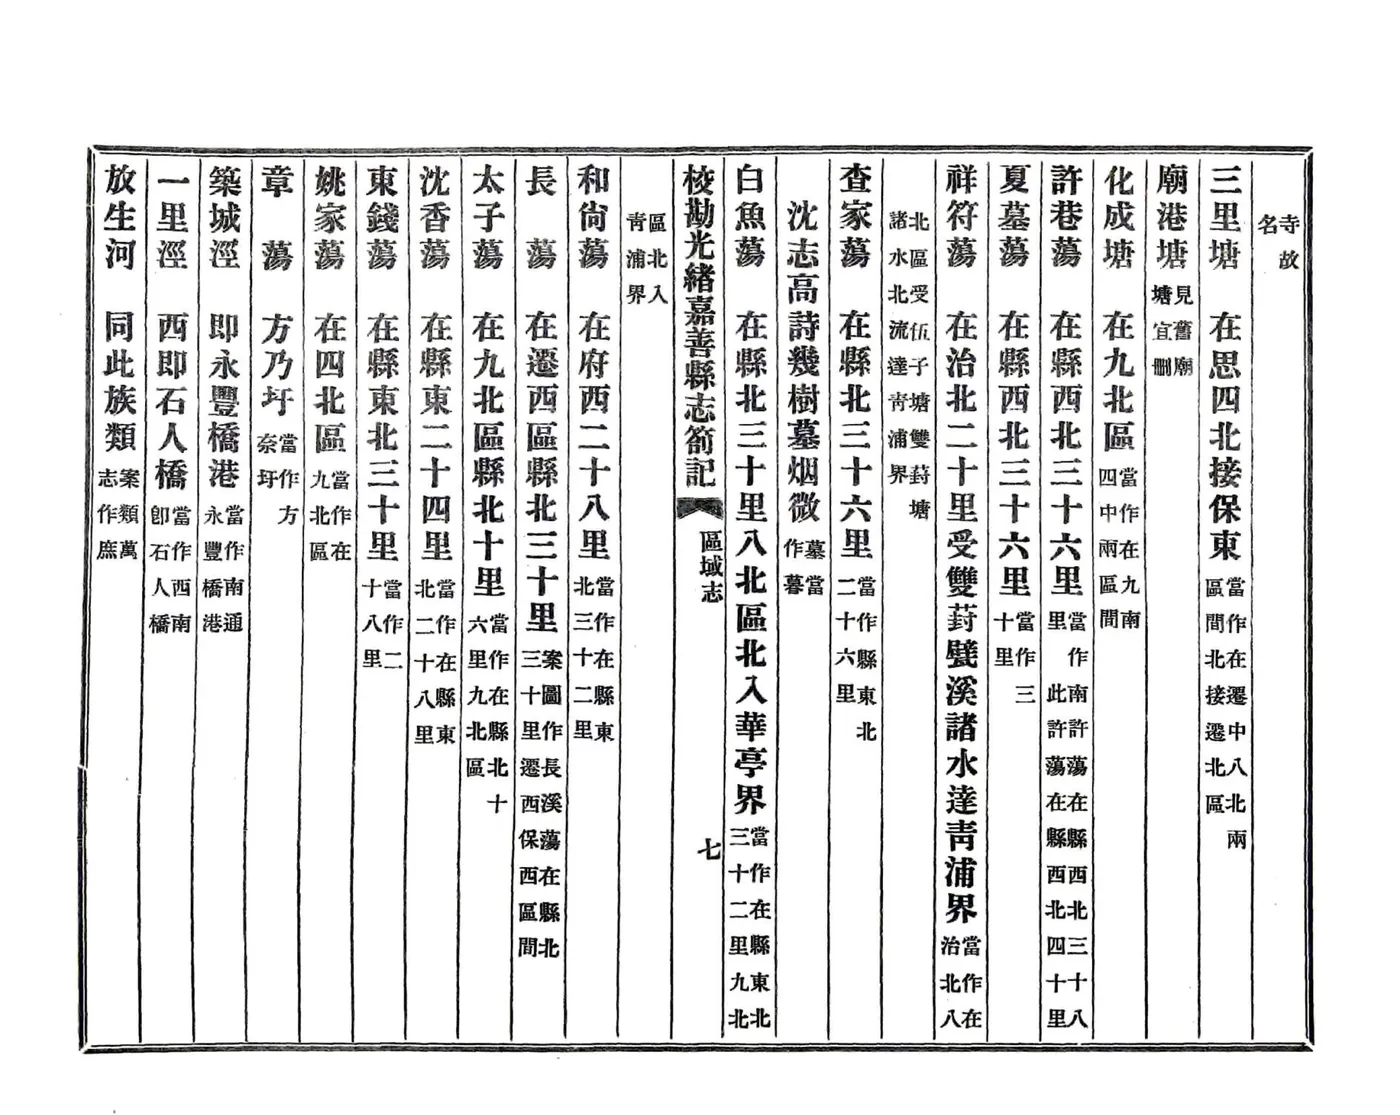 寺故名
三里塘　在思四北接保東當作在遷中八北兩區間北接遷北區
廟港塘見舊廟塘宜刪
化成塘　在九北區當作在九南四中兩區間
許巷蕩　在縣西北三十六里當作南許蕩在縣西北三十八里　此許蕩在縣西北四十里
夏墓蕩　在縣西北三十六里當作三十里
祥符蕩　在治北二十里受雙葑甓溪諸水達靑浦界當作在治北八
北區受伍子塘雙葑塘諸水北流達靑浦界
查家蕩　在縣北三十六里當作縣東北二十六里
沈志高詩幾樹墓烟微墓當作暮
白魚蕩　在縣北三十里八北區北入華亭界當作在縣東北三十二里九北
校勘光緒嘉善縣志箚記　區域志　七
區北入靑浦界
和尙蕩　在府西二十八里當作在縣東北三十二里
長　蕩　在遷西區縣北三十里案圖作長溪蕩在縣北三十里遷西保西區間
太子蕩　在九北區縣北十里當作在縣北十六里九北區
沈香蕩　在縣東二十四里當作在縣東北二十八里
東錢蕩　在縣東北三十里當作二十八里
姚家蕩　在四北區當作在九北區
章　蕩　方乃圩當作方奈圩
築城涇　即永豐橋港當作南通永豐橋港
一里涇　西即石人橋當作西南卽石人橋
放生河　同此族類案類萬志作庶